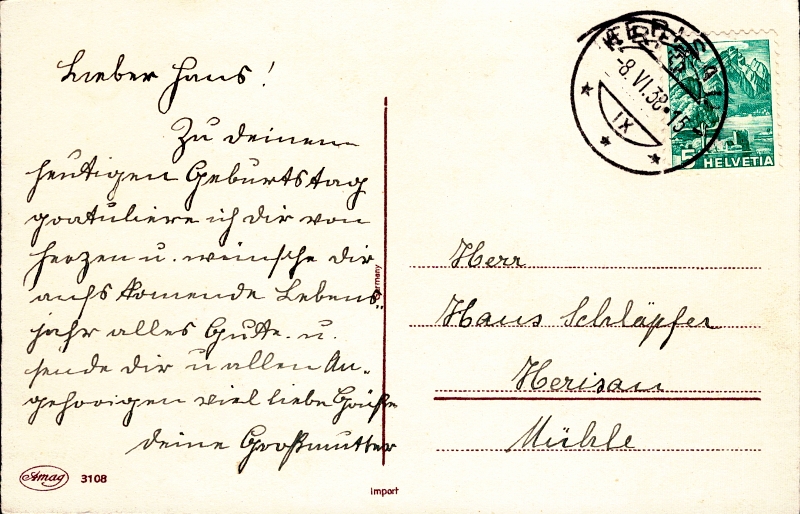 Lieber Hans!
Zu deinem
heutigen Geburtstag
gratuliere ich dir von
Herzen u. wünsche dir
aufs komende Lebens-
jahr alles Gutte. u.
sende dir u allen An-
gehörigen viel liebe Grüße
deine Großmutter
HERISAU
-8.VI.38.15
IX
5 HELVETIA
Herr
Hans Schläpfer
Herisau
Mühle
Germany
Amag 3108
Import